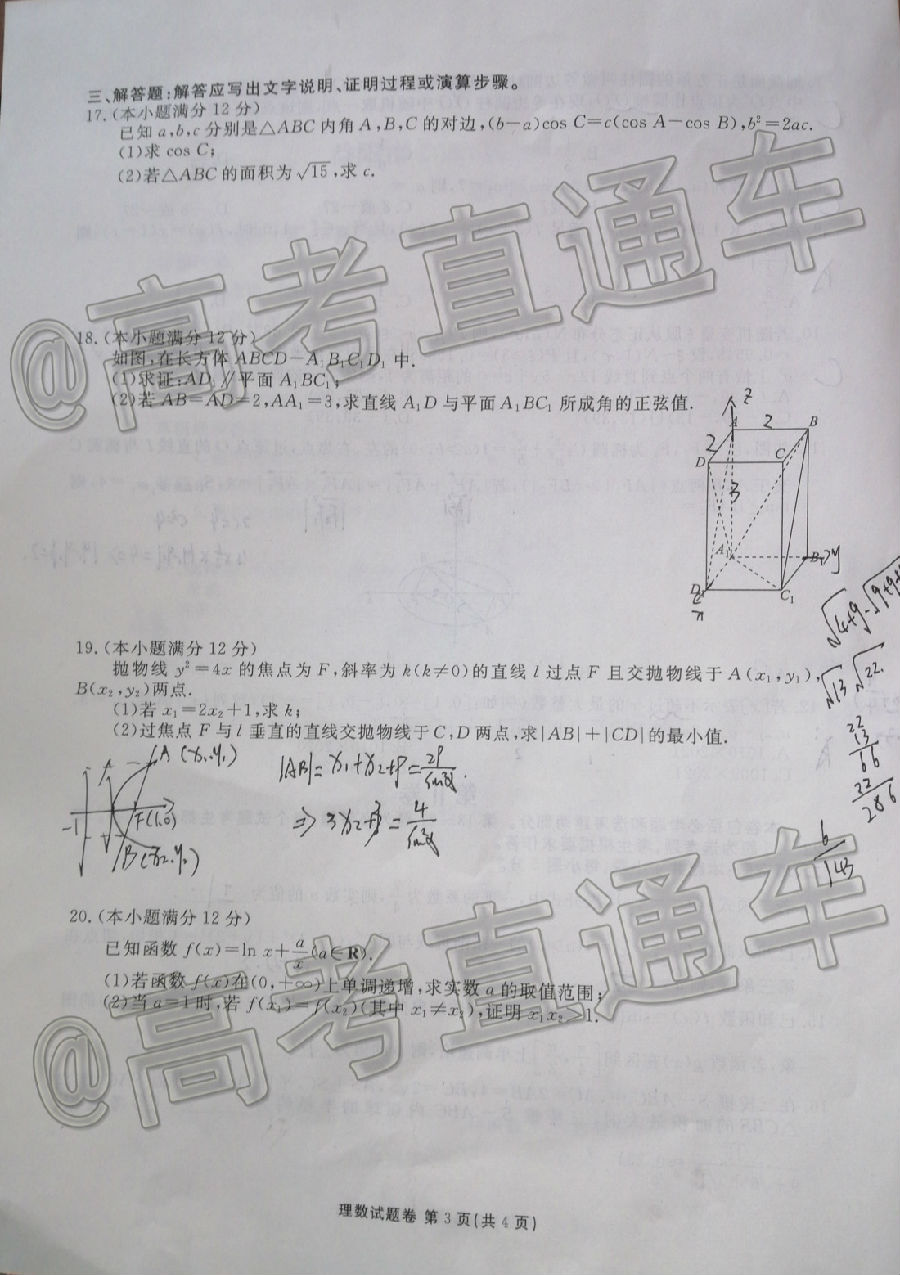 三、解答题:解答应写出文字说明、证明过程或演算步骤。
17.(本小题满分 12 分)
已知 a,b,c 分别是△ABC 内角 A,B,C 的对边,(b-a)cos C=c(cos A-cos B),b²=2ac.
(1)求 cos C;
(2)若△ABC 的面积为 √15,求 c.
@高考直通车
18.(本小题满分 12 分)
如图,在长方体 ABCD-A₁B₁C₁D₁ 中.
(1)求证:AD₁∥平面 A₁BC₁;
(2)若 AB=AD=2,AA₁=3,求直线 A₁D 与平面 A₁BC₁ 所成角的正弦值.
z
A 2 B
2
D C
3
A₁ B₁ y
D₁ C₁
x
√13 √22
22
13
66
22
286
6
√143
19.(本小题满分 12 分)
抛物线 y²=4x 的焦点为 F,斜率为 k(k≠0)的直线 l 过点 F 且交抛物线于 A(x₁,y₁),
B(x₂,y₂)两点.
(1)若 x₁=2x₂+1,求 k;
(2)过焦点 F 与 l 垂直的直线交抛物线于 C,D 两点,求|AB|+|CD|的最小值.
A(x₁,y₁)
-1 F(1,0)
B(x₂,y₂)
|AB|=x₁+x₂+p=2p/sin²α
⇒3x₂+3=4/sin²α
20.(本小题满分 12 分)
已知函数 f(x)=ln x+a/x(a∈R).
(1)若函数 f(x)在(0,+∞)上单调递增,求实数 a 的取值范围;
(2)当 a=1 时,若 f(x₁)=f(x₂)(其中 x₁≠x₂),证明 x₁x₂>1.
@高考直通车
理数试题卷 第 3 页(共 4 页)